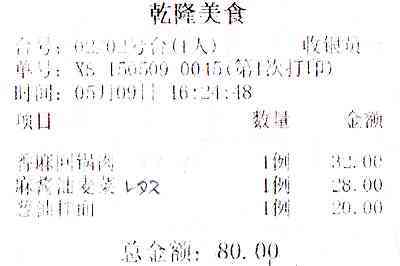 乾隆美食
台号: 02/02号台(1人) 收银员
单号: XS-150509-0045(第1次打印)
时间: 05月09日 16:24:48
项目 数量 金额
香麻回锅肉 1例 32.00
麻酱油麦菜 レタス 1例 28.00
葱油拌面 1例 20.00
总金额: 80.00